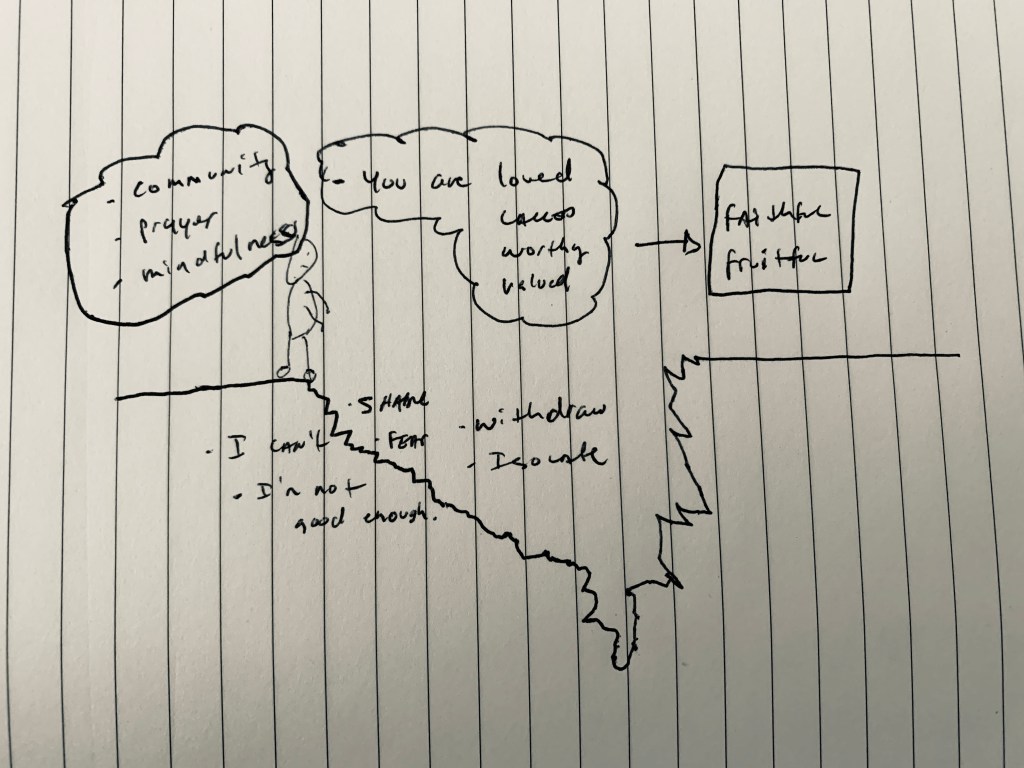 - community
- prayer
- mindfulness
- You are loved
worthy
valued
FAithful
fruitful
- I CAN'T
- I'm not
good enough.
- SHAME
- FEAR
- withdraw
- Isolate